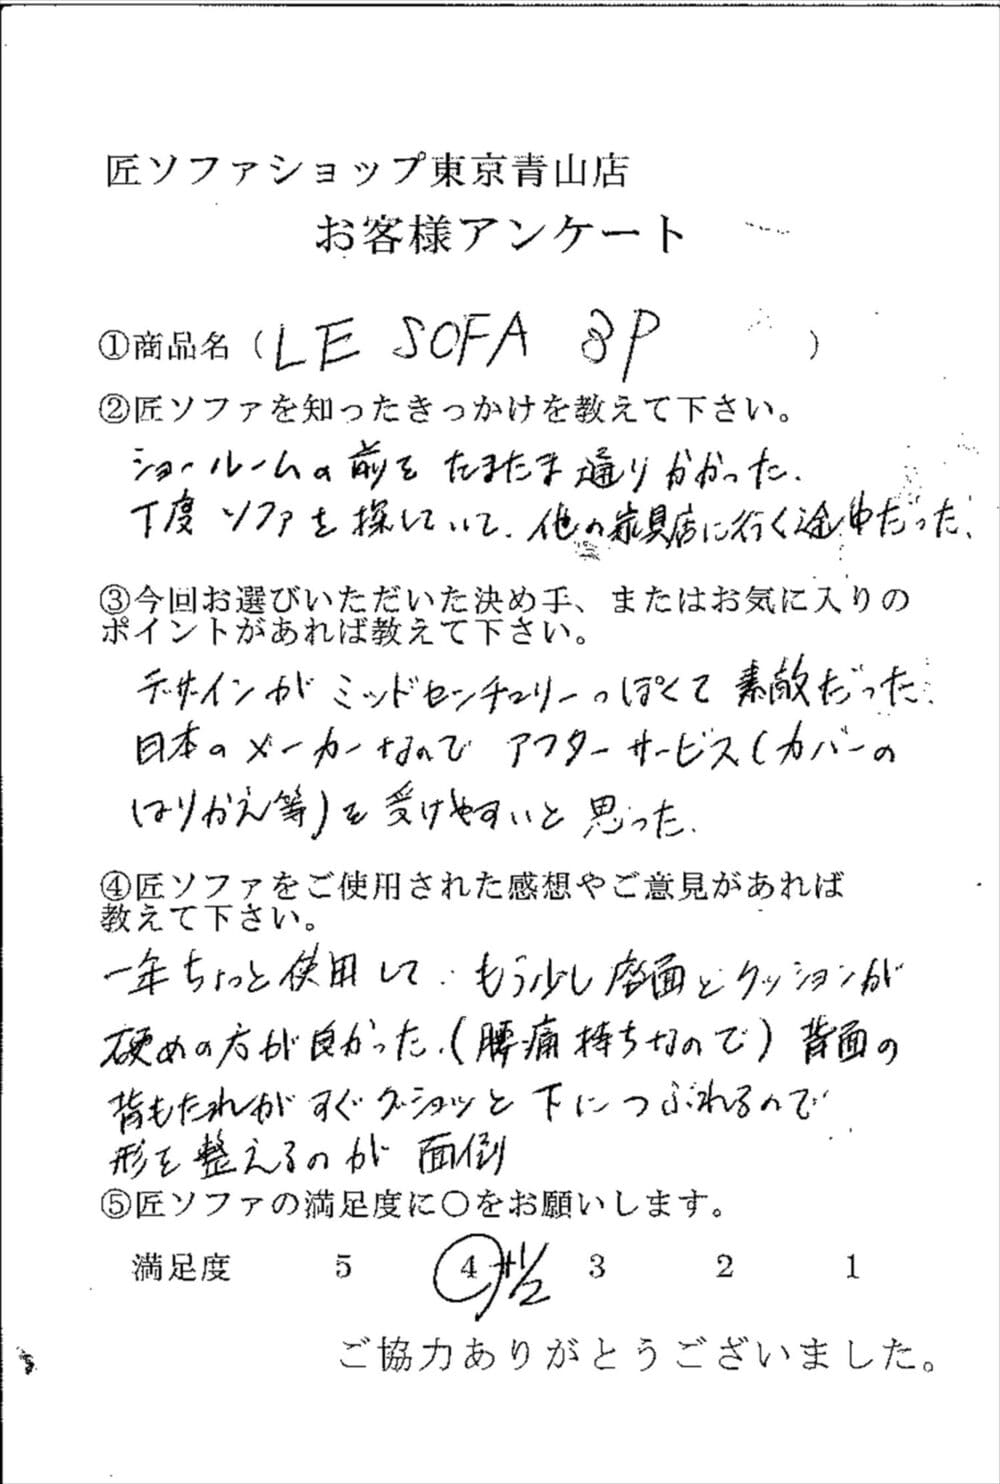 匠ソファショップ東京青山店
お客様アンケート
①商品名（LE SOFA 3P ）
②匠ソファを知ったきっかけを教えて下さい。
ショールームの前をたまたま通りかかった.
丁度ソファを探していて. 他の家具店に行く途中だった.
③今回お選びいただいた決め手、またはお気に入りの
ポイントがあれば教えて下さい。
デザインがミッドセンチュリーっぽくて素敵だった.
日本のメーカーなので アフターサービス(カバーの
はりかえ等)を受けやすいと思った.
④匠ソファをご使用された感想やご意見があれば
教えて下さい。
一年ちょっと使用して. もう少し座面とクッションが
硬めの方が良かった.(腰痛持ちなので)背面の
背もたれがすぐグショッと下につぶれるので
形を整えるのが面倒
⑤匠ソファの満足度に〇をお願いします。
満足度 5 4+1/2 3 2 1
ご協力ありがとうございました。